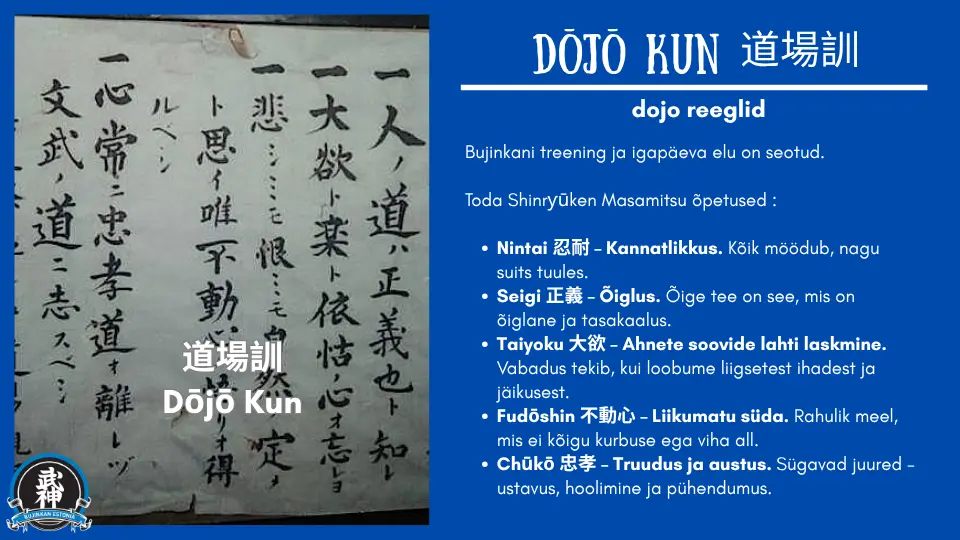 一人ノ道ハ正義也ト知レ
一大欲ト楽ト依怙ノ心オ忘レヨ
一悲シミモ恨ミモ自然定メ
ト思イ唯不動心悟リオ得
ルベシ
一心常ニ忠孝道オ離レヅ
文武ノ道ニ志スベシ
道場訓
Dōjō Kun
武神
BUJINKAN ESTONIA
DŌJŌ KUN 道場訓
dojo reeglid
Bujinkani treening ja igapäeva elu on seotud.
Toda Shinryūken Masamitsu õpetused :
• Nintai 忍耐 – Kannatlikkus. Kõik möödub, nagu
suits tuules.
• Seigi 正義 – Õiglus. Õige tee on see, mis on
õiglane ja tasakaalus.
• Taiyoku 大欲 – Ahnete soovide lahti laskmine.
Vabadus tekib, kui loobume liigsetest ihadest ja
jäikusest.
• Fudōshin 不動心 – Liikumatu süda. Rahulik meel,
mis ei kõigu kurbuse ega viha all.
• Chūkō 忠孝 – Truudus ja austus. Sügavad juured –
ustavus, hoolimine ja pühendumus.